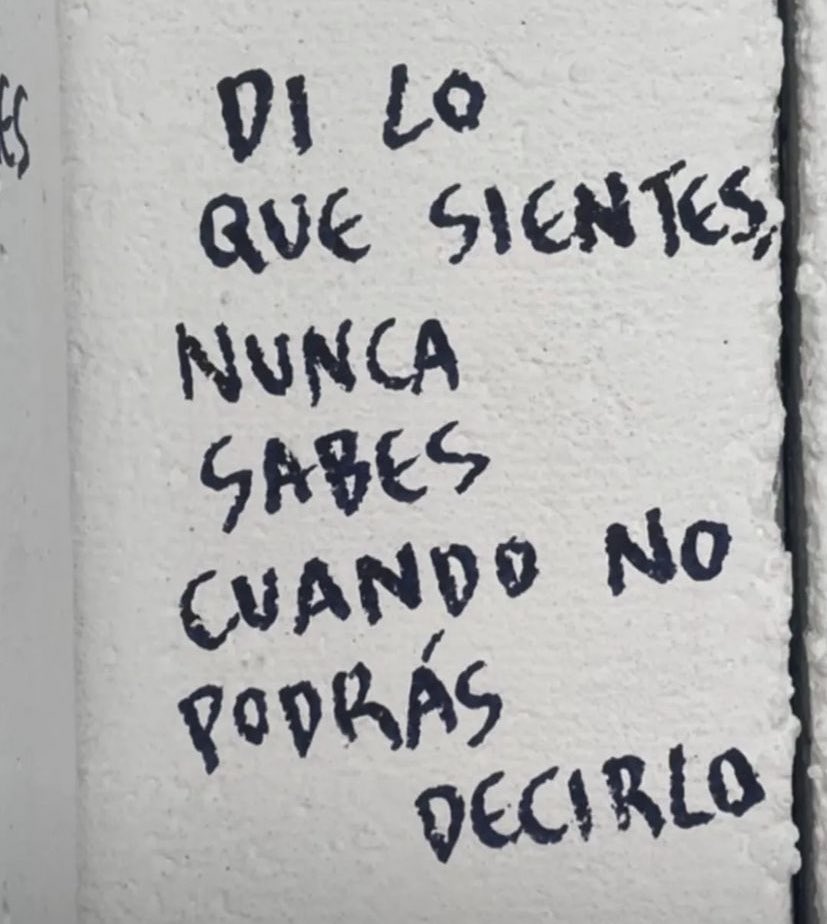 DI LO
QUE SIENTES,
NUNCA
SABES
CUANDO NO
PODRÁS
DECIRLO